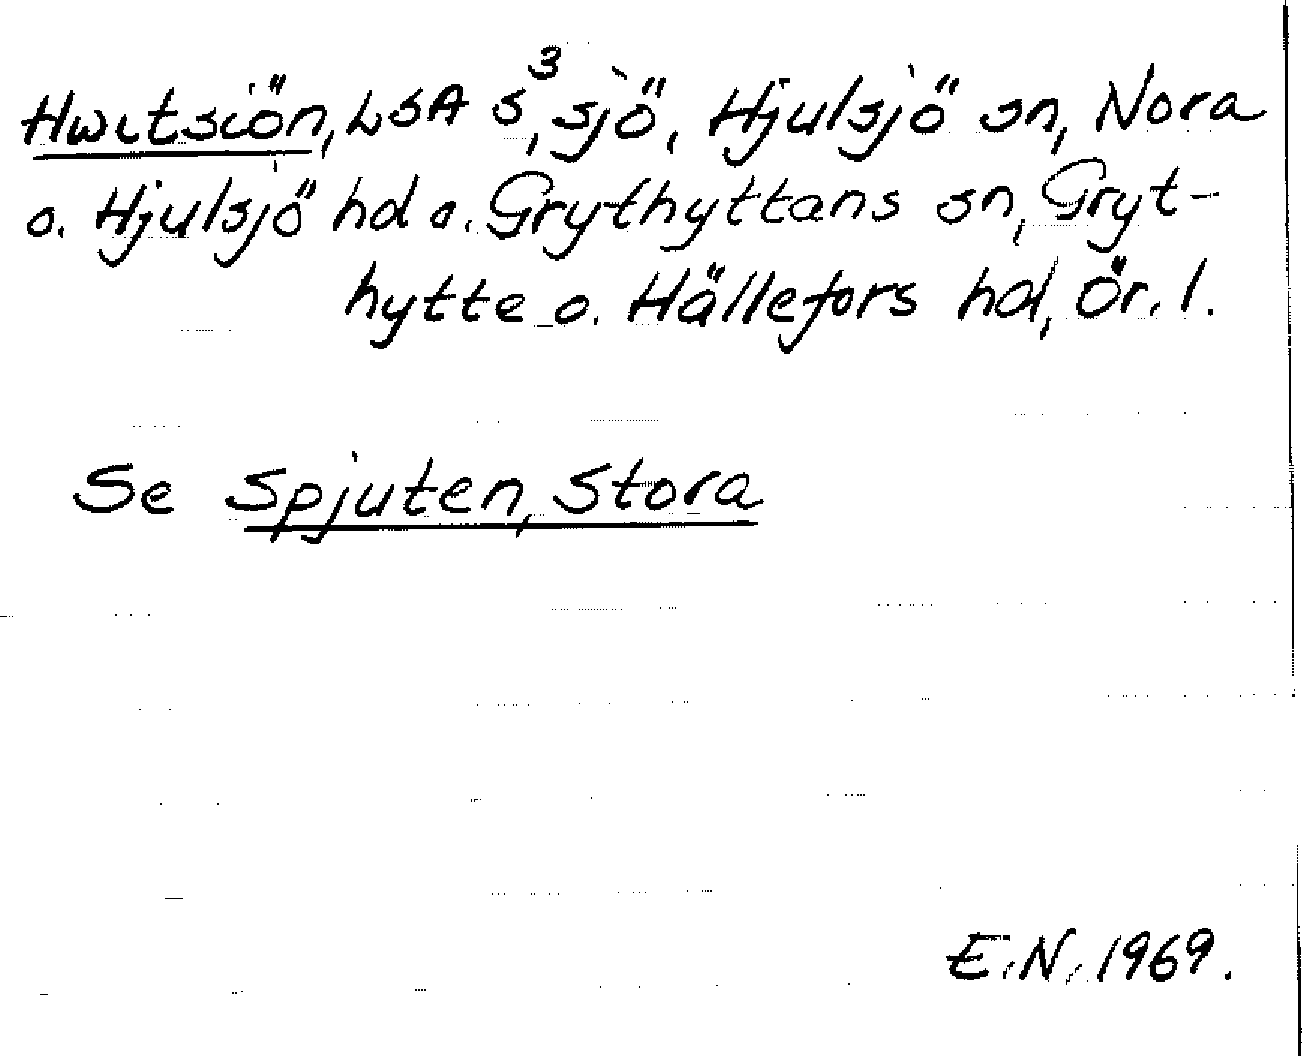 Hwitsiön, LSA S³, sjö, Hjulsjö sn, Nora
o. Hjulsjö hd o. Grythyttans sn, Gryt-
hytte o. Hällefors hd, Ör. l.
Se Spjuten, Stora
E.N. 1969.